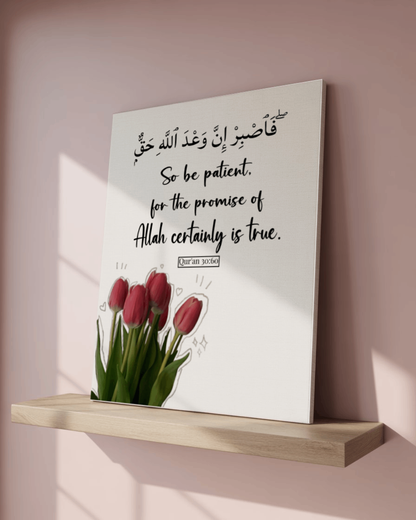 ۖ فَٱصْبِرْ إِنَّ وَعْدَ ٱللَّهِ حَقٌّۭ
So be patient,
for the promise of
Allah certainly is true.
Qur'an 30:60